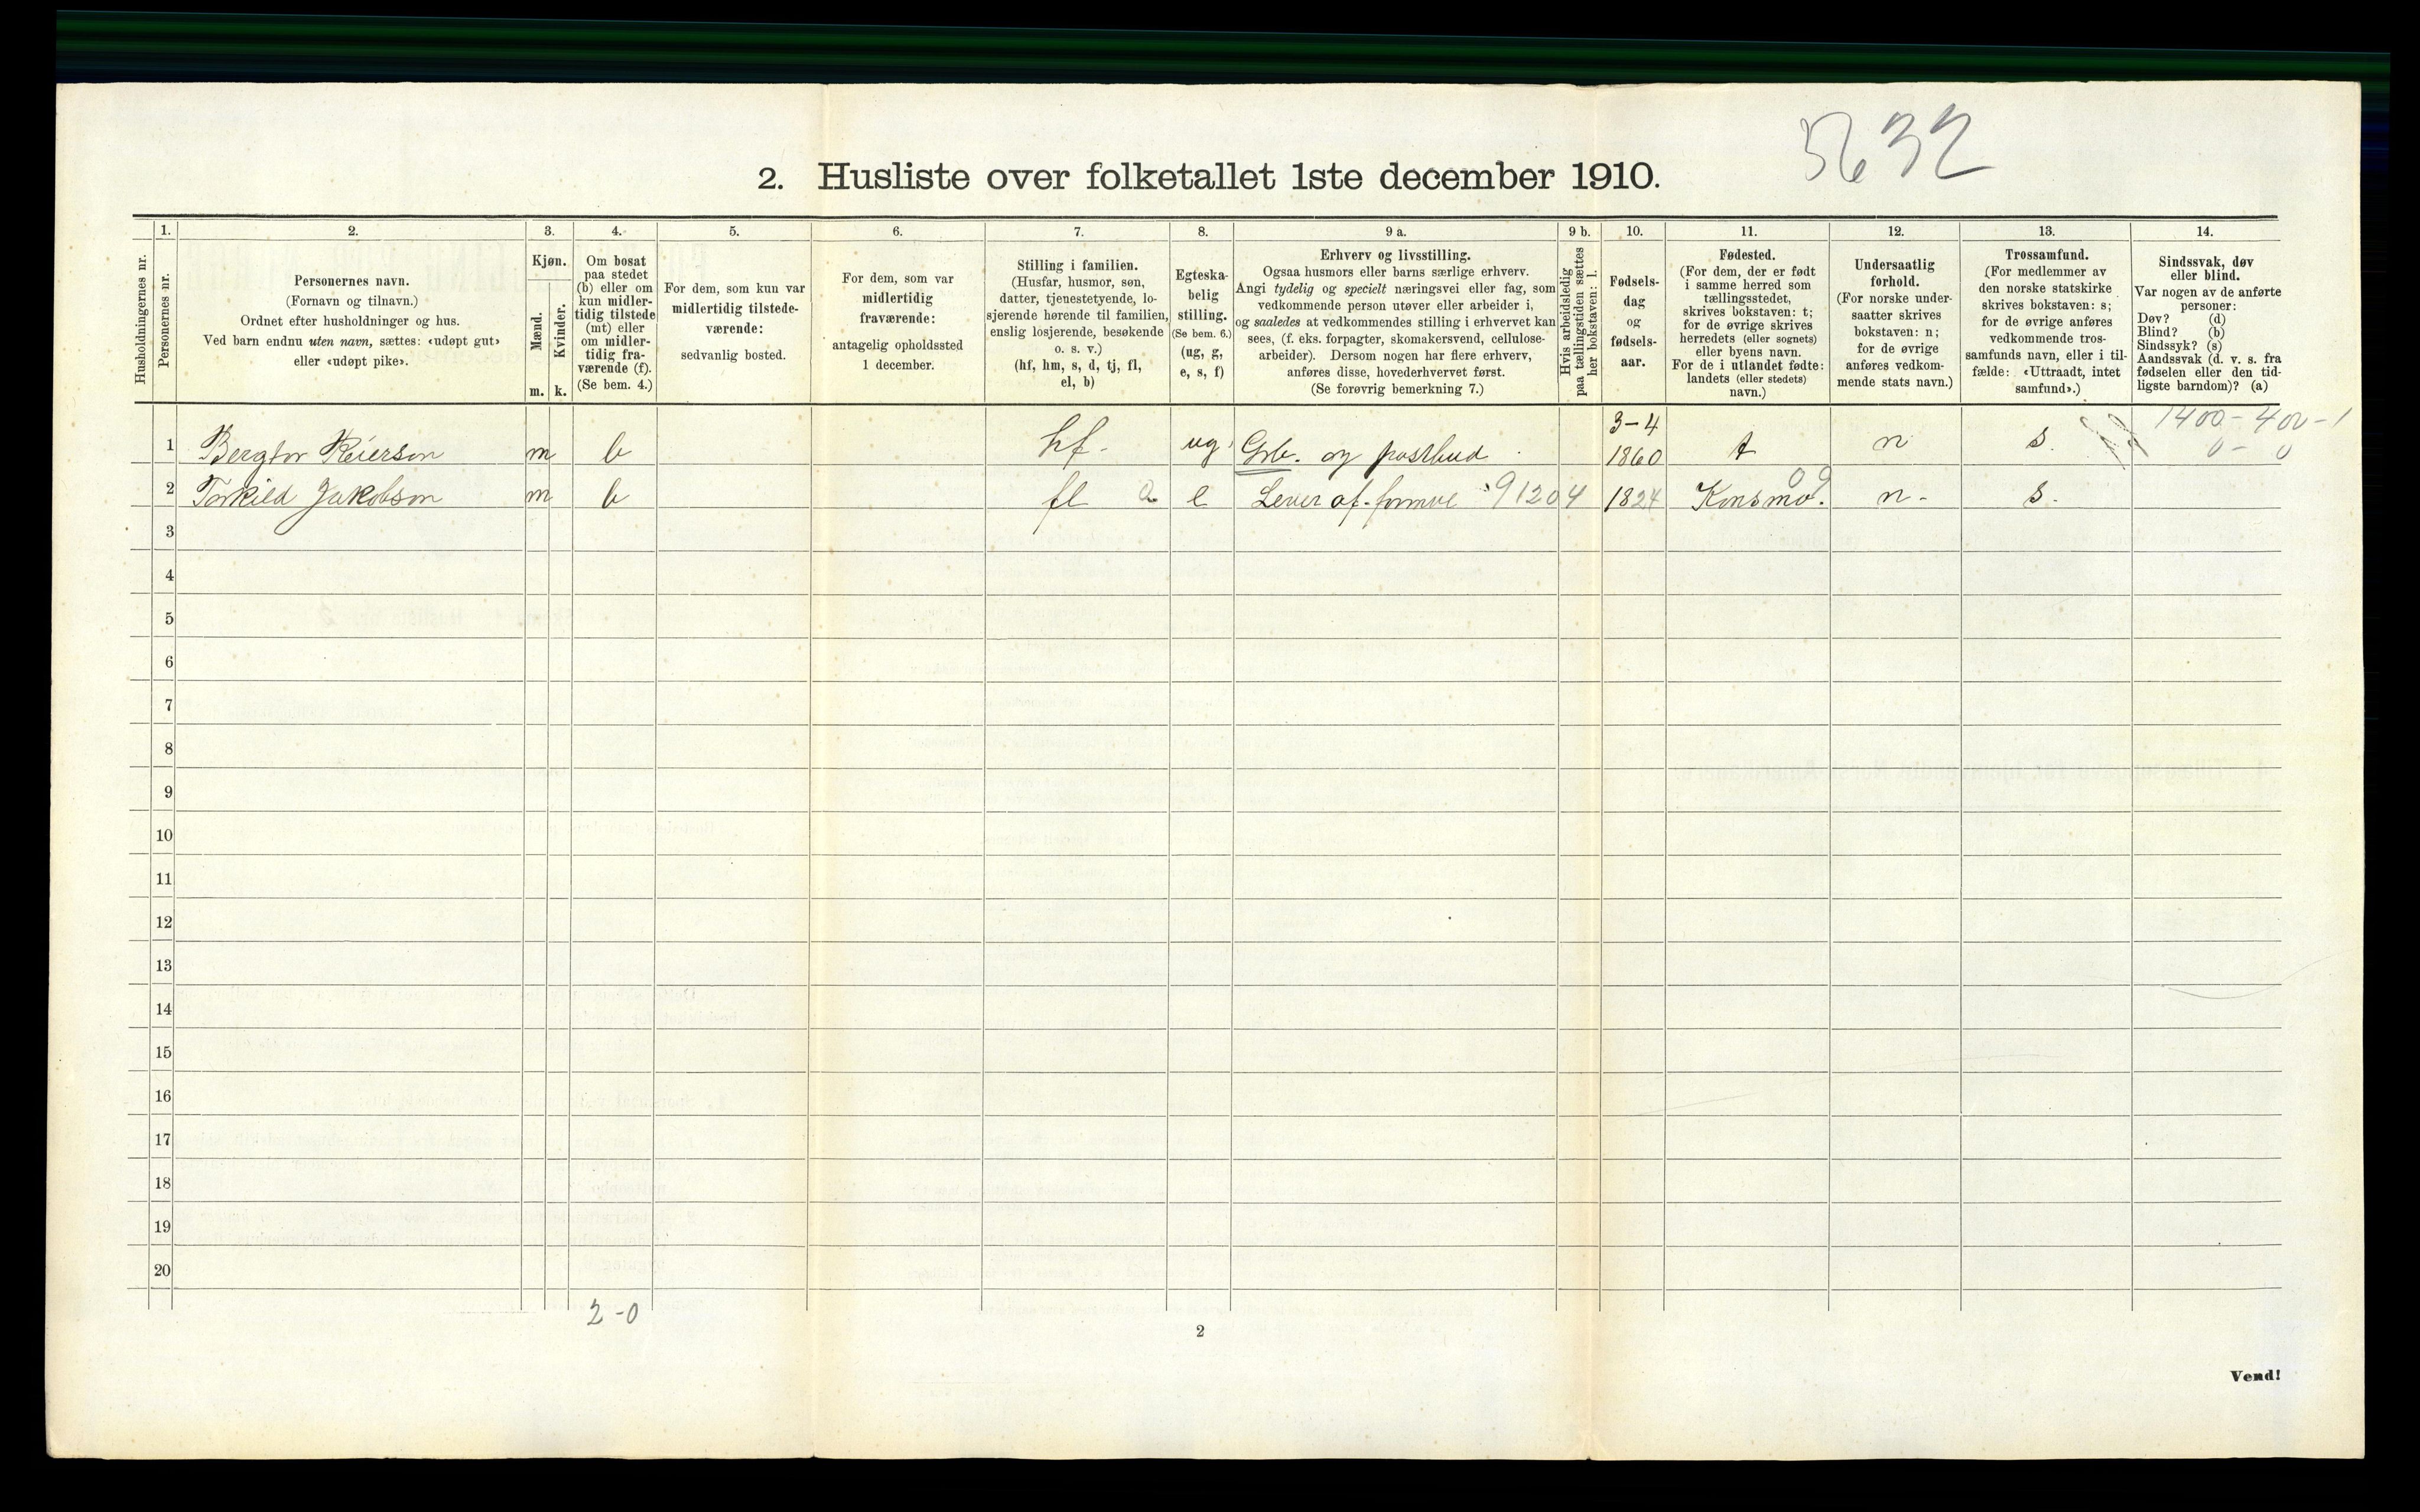 5632
2. Husliste over folketallet 1ste december 1910.
Husholdningernes nr.
1.
Personernes nr.
2.
Personernes navn.
(Fornavn og tilnavn.)
Ordnet efter husholdninger og hus.
Ved barn endnu uten navn, sættes: «udøpt gut»
eller «udøpt pike».
3.
Kjøn.
Mænd.
Kvinder.
m. k.
4.
Om bosat
paa stedet
(b) eller om
kun midler-
tidig tilstede
(mt) eller
om midler-
tidig fra-
værende (f).
(Se bem. 4.)
5.
For dem, som kun var
midlertidig tilstede-
værende:
sedvanlig bosted.
6.
For dem, som var
midlertidig
fraværende:
antagelig opholdssted
1 december.
7.
Stilling i familien.
(Husfar, husmor, søn,
datter, tjenestetyende, lo-
sjerende hørende til familien,
enslig losjerende, besøkende
o. s. v.)
(hf, hm, s, d, tj, fl,
el, b)
8.
Egteska-
belig
stilling.
(Se bem. 6.)
(ug, g,
e, s, f)
9 a.
Erhverv og livsstilling.
Ogsaa husmors eller barns særlige erhverv.
Angi tydelig og specielt næringsvei eller fag, som
vedkommende person utøver eller arbeider i,
og saaledes at vedkommendes stilling i erhvervet kan
sees, (f. eks. forpagter, skomakersvend, cellulose-
arbeider). Dersom nogen har flere erhverv,
anføres disse, hovederhvervet først.
(Se forøvrig bemerkning 7.)
9 b.
Hvis arbeidsledig
paa tællingstiden sættes
her bokstaven: l.
10.
Fødsels-
dag
og
fødsels-
aar.
11.
Fødested.
(For dem, der er født
i samme herred som
tællingsstedet,
skrives bokstaven: t;
for de øvrige skrives
herredets (eller sognets)
eller byens navn.
For de i utlandet fødte:
landets (eller stedets)
navn.)
12.
Undersaatlig
forhold.
(For norske under-
saatter skrives
bokstaven: n;
for de øvrige
anføres vedkom-
mende stats navn.)
13.
Trossamfund.
(For medlemmer av
den norske statskirke
skrives bokstaven: s;
for de øvrige anføres
vedkommende tros-
samfunds navn, eller i til-
fælde: «Uttraadt, intet
samfund».)
14.
Sindssvak, døv
eller blind.
Var nogen av de anførte
personer:
Døv? (d)
Blind? (b)
Sindssyk? (s)
Aandssvak (d. v. s. fra
fødselen eller den tid-
ligste barndom)? (a)
1400-400-1
0-0
1 Bergtor Reierson m b hf- ug. Grb. og postbud. 3-4 1860 t n s.
2 Torkild Jakobson m b fl a e Lever af formue 91204 1824 Konsmo. 09 n- s.
3
4
5
6
7
8
9
10
11
12
13
14
15
16
17
18
19
20
2-0
2
Vend!